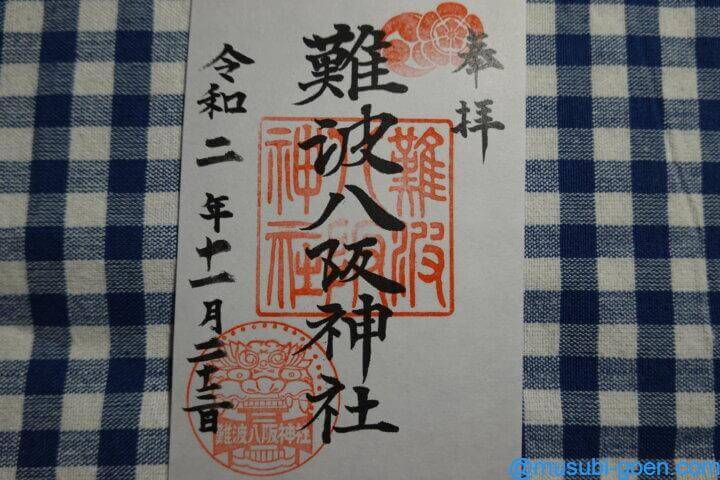 奉拝
難波八阪神社
令和二年十一月二十三日
難波
八阪
神社
難波八阪神社
@musubi-goen.com